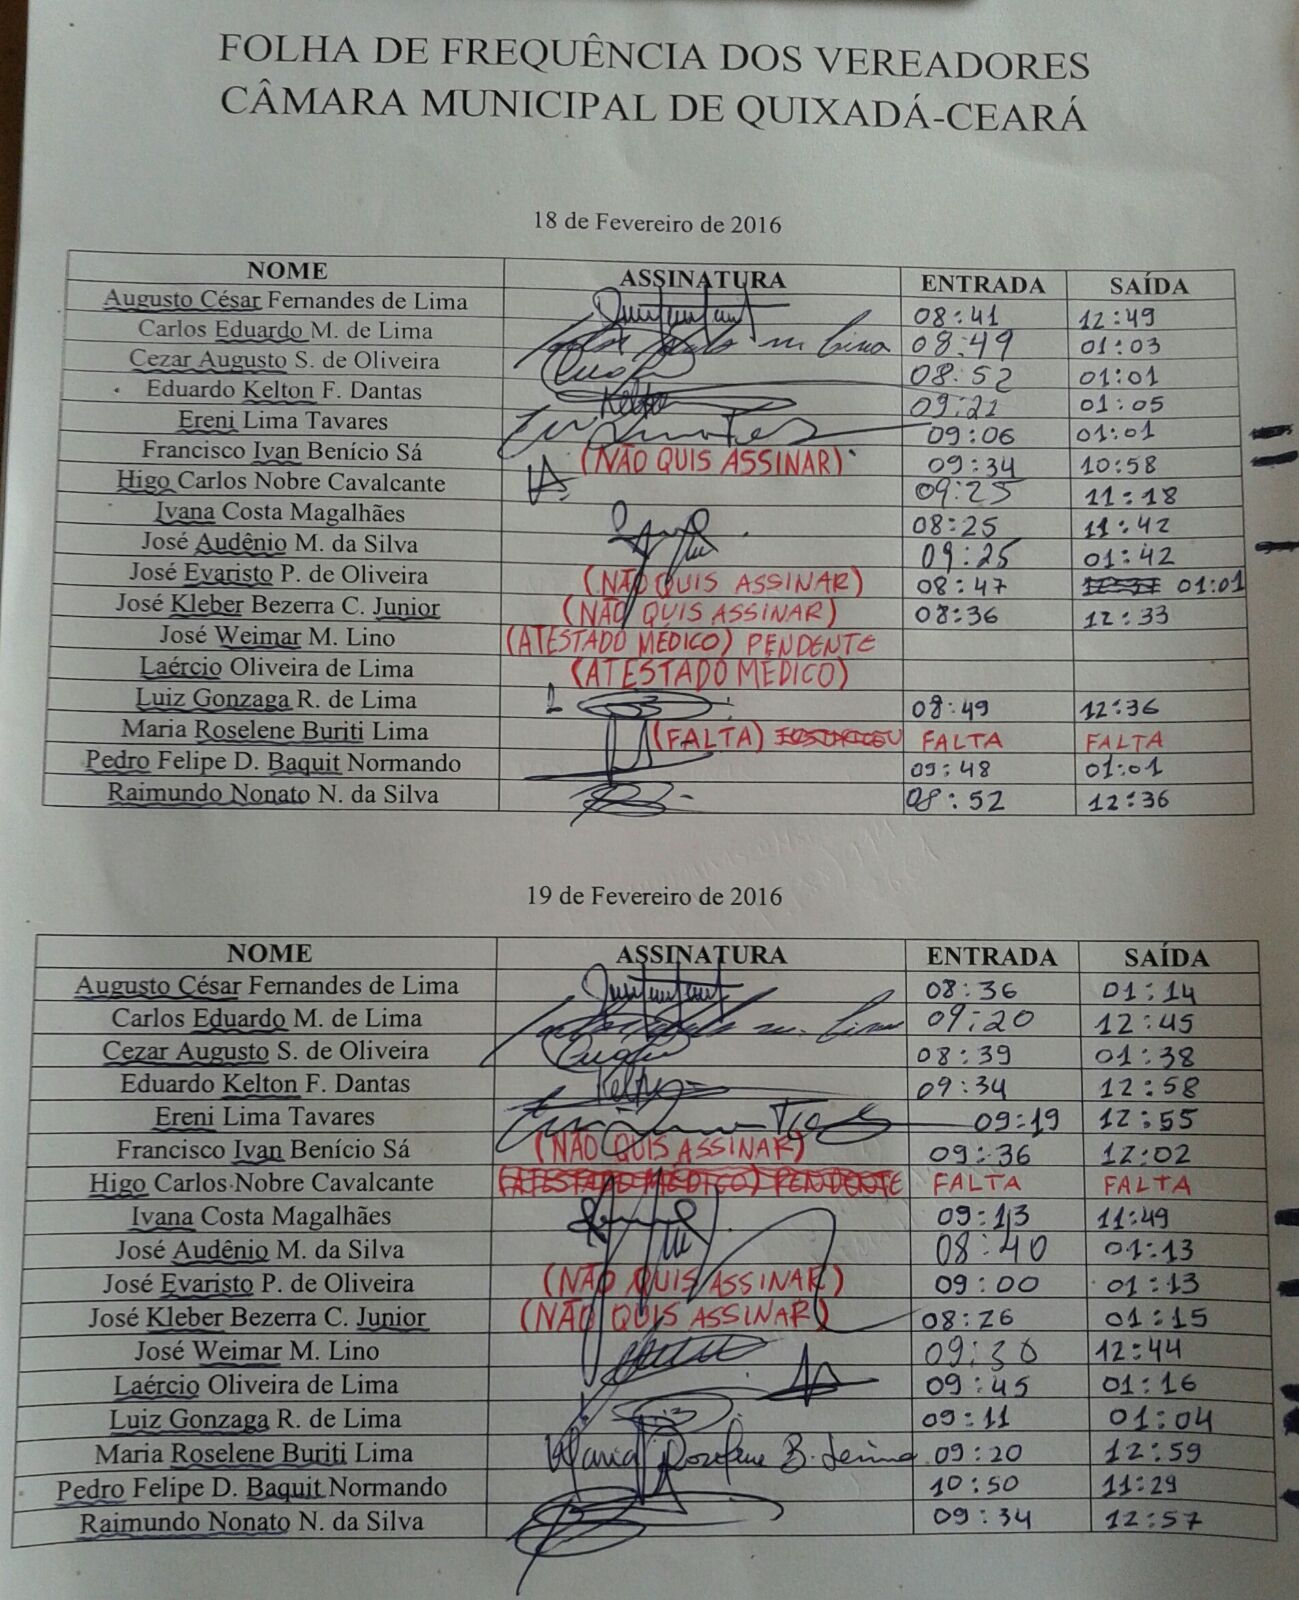 FOLHA DE FREQUÊNCIA DOS VEREADORES
CÂMARA MUNICIPAL DE QUIXADÁ-CEARÁ
18 de Fevereiro de 2016
NOME ASSINATURA ENTRADA SAÍDA
Augusto César Fernandes de Lima 08:41 12:49
Carlos Eduardo M. de Lima 08:49 01:03
Cezar Augusto S. de Oliveira 08:52 01:01
Eduardo Kelton F. Dantas Kelton 09:21 01:05
Ereni Lima Tavares 09:06 01:01
Francisco Ivan Benício Sá (NÃO QUIS ASSINAR) 09:34 10:58
Higo Carlos Nobre Cavalcante 09:25 11:18
Ivana Costa Magalhães 08:25 11:42
José Audênio M. da Silva 09:25 01:42
José Evaristo P. de Oliveira (NÃO QUIS ASSINAR) 08:47 01:01
José Kleber Bezerra C. Junior (NÃO QUIS ASSINAR) 08:36 12:33
José Weimar M. Lino (ATESTADO MÉDICO) PENDENTE
Laércio Oliveira de Lima (ATESTADO MÉDICO)
Luiz Gonzaga R. de Lima 08:49 12:36
Maria Roselene Buriti Lima (FALTA) FALTA FALTA
Pedro Felipe D. Baquit Normando 09:48 01:01
Raimundo Nonato N. da Silva 08:52 12:36
19 de Fevereiro de 2016
NOME ASSINATURA ENTRADA SAÍDA
Augusto César Fernandes de Lima 08:36 01:14
Carlos Eduardo M. de Lima 09:20 12:45
Cezar Augusto S. de Oliveira 08:39 01:38
Eduardo Kelton F. Dantas 09:34 12:58
Ereni Lima Tavares 09:19 12:55
Francisco Ivan Benício Sá (NÃO QUIS ASSINAR) 09:36 12:02
Higo Carlos Nobre Cavalcante (ATESTADO MÉDICO) PENDENTE FALTA FALTA
Ivana Costa Magalhães 09:13 11:49
José Audênio M. da Silva 08:40 01:13
José Evaristo P. de Oliveira (NÃO QUIS ASSINAR) 09:00 01:13
José Kleber Bezerra C. Junior (NÃO QUIS ASSINAR) 08:26 01:15
José Weimar M. Lino 09:30 12:44
Laércio Oliveira de Lima 09:45 01:16
Luiz Gonzaga R. de Lima 09:11 01:04
Maria Roselene Buriti Lima Maria Roselene B. Lima 09:20 12:59
Pedro Felipe D. Baquit Normando 10:50 11:29
Raimundo Nonato N. da Silva 09:34 12:57